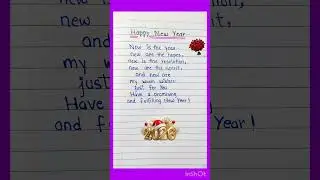 Happy New Year
New is the year
new are the hopes,
new is the resolution,
new are the spirit,
and new are
my warm wishes
Just for You
Have a promising
and fulfilling New Year!
2026
InShOt